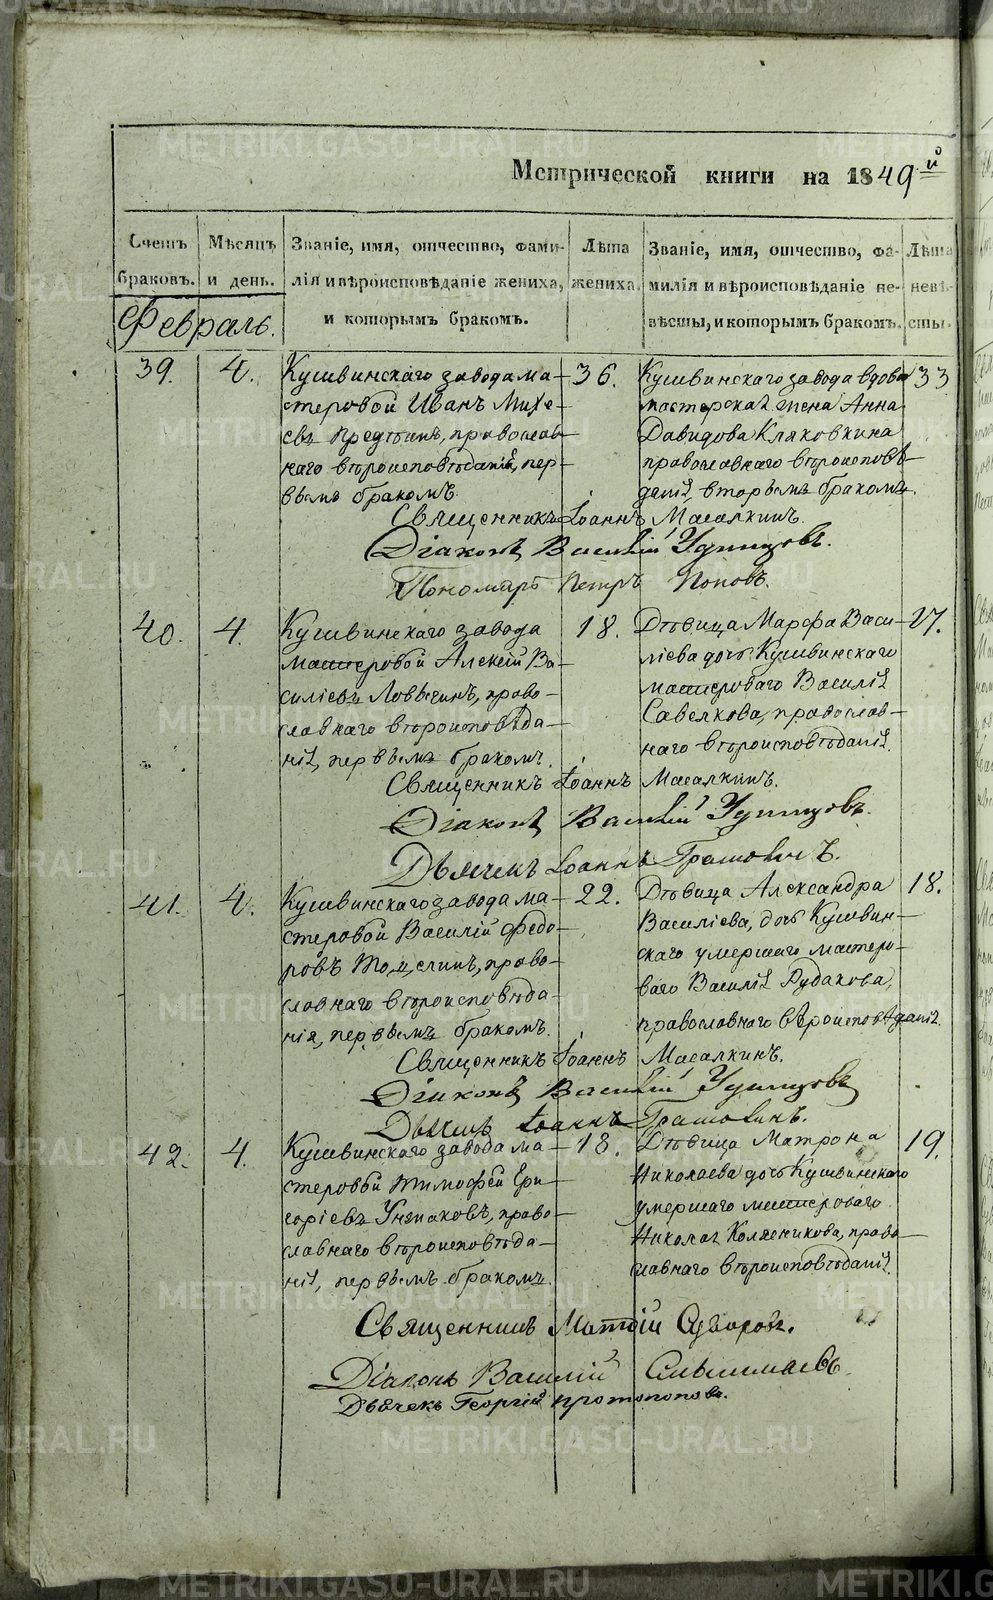 Метрической книги на 1849й
Счетъ браковъ.
Мѣсяцъ и день.
Званіе, имя, отчество, фами-
лія и вѣроисповѣданіе жениха,
и которымъ бракомъ.
Лѣта жениха.
Званіе, имя, отчество, фа-
милія и вѣроисповѣданіе не-
вѣсты, и которымъ бракомъ.
Лѣта невѣ-
сты.
Февраль.
39. 4.
Кушвинскаго завода ма-
стеровой Иванъ Михе-
евъ православ-
наго вѣроисповѣданія, пер-
вымъ бракомъ.
36.
Кушвинскаго завода вдова
мастерская жена Анна
Давидова Кляковкина
православнаго вѣроисповѣ-
данія, вторымъ бракомъ.
33
Священникъ Іоаннъ Масалкинъ.
Діаконъ Василій Удинцовъ.
Пономарь Петръ Поповъ.
40. 4.
Кушвинскаго завода
мастеровой Алексѣй Ва-
силіевъ Ловыгинъ, право-
славнаго вѣроисповѣда-
нія, первымъ бракомъ.
18.
Дѣвица Марфа Васи-
ліева дочь Кушвинскаго
мастероваго Василія
Савелкова, православ-
наго вѣроисповѣданія.
17.
Священникъ Іоаннъ Масалкинъ.
Діаконъ Василій Удинцовъ.
Дьячекъ Іоаннъ Грамолинъ.
41. 4.
Кушвинскаго завода ма-
стеровой Василій Федо-
ровъ право-
славнаго вѣроисповѣда-
нія, первымъ бракомъ.
22.
Дѣвица Александра
Василіева, дочь Кушвин-
скаго умершаго мастеро-
ваго Василія Рудакова,
православнаго вѣроисповѣданія.
18.
Священникъ Іоаннъ Масалкинъ.
Діаконъ Василій Удинцовъ
Дьячекъ Іоаннъ Грамолинъ.
42. 4.
Кушвинскаго завода ма-
стеровой Тимофей Гри-
горіевъ право-
славнаго вѣроисповѣда-
нія, первымъ бракомъ.
18.
Дѣвица Матрона
Николаева дочь Кушвинскаго
умершаго мастероваго
Николая Колясникова, право-
славнаго вѣроисповѣданія.
19.
Священникъ Матѳій Суворовъ.
Діаконъ Василій
Дьячекъ Георгій Протопоповъ.
METRIKI.GASO-URAL.RU